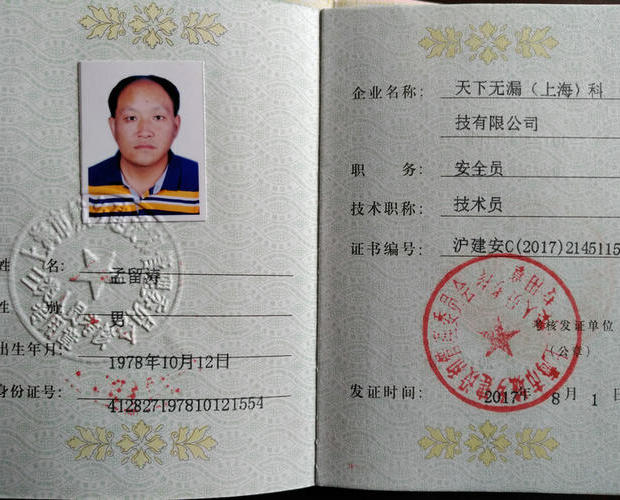 姓 名: 孟留涛
性 别: 男
出生年月: 1978年10月12日
身份证号: 412827197810121554
企业名称: 天下无漏（上海）科
技有限公司
职 务: 安全员
技术职称: 技术员
证书编号: 沪建安C(2017)2145115
考核发证单位
(公章)
发证时间: 2017年 8月 1日